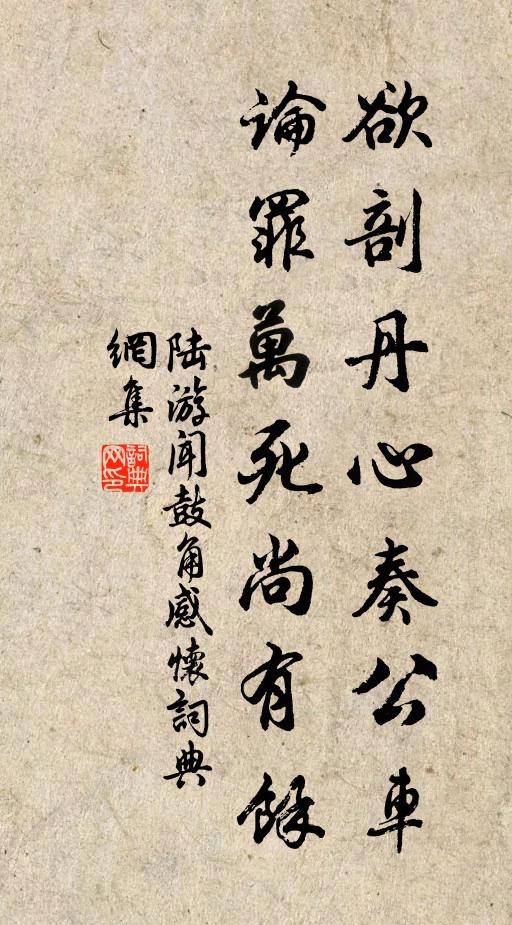 欲剖丹心奏公車
論罪萬死尚有餘
陆游闻鼓角感懷詞典
網集
詞典
网印